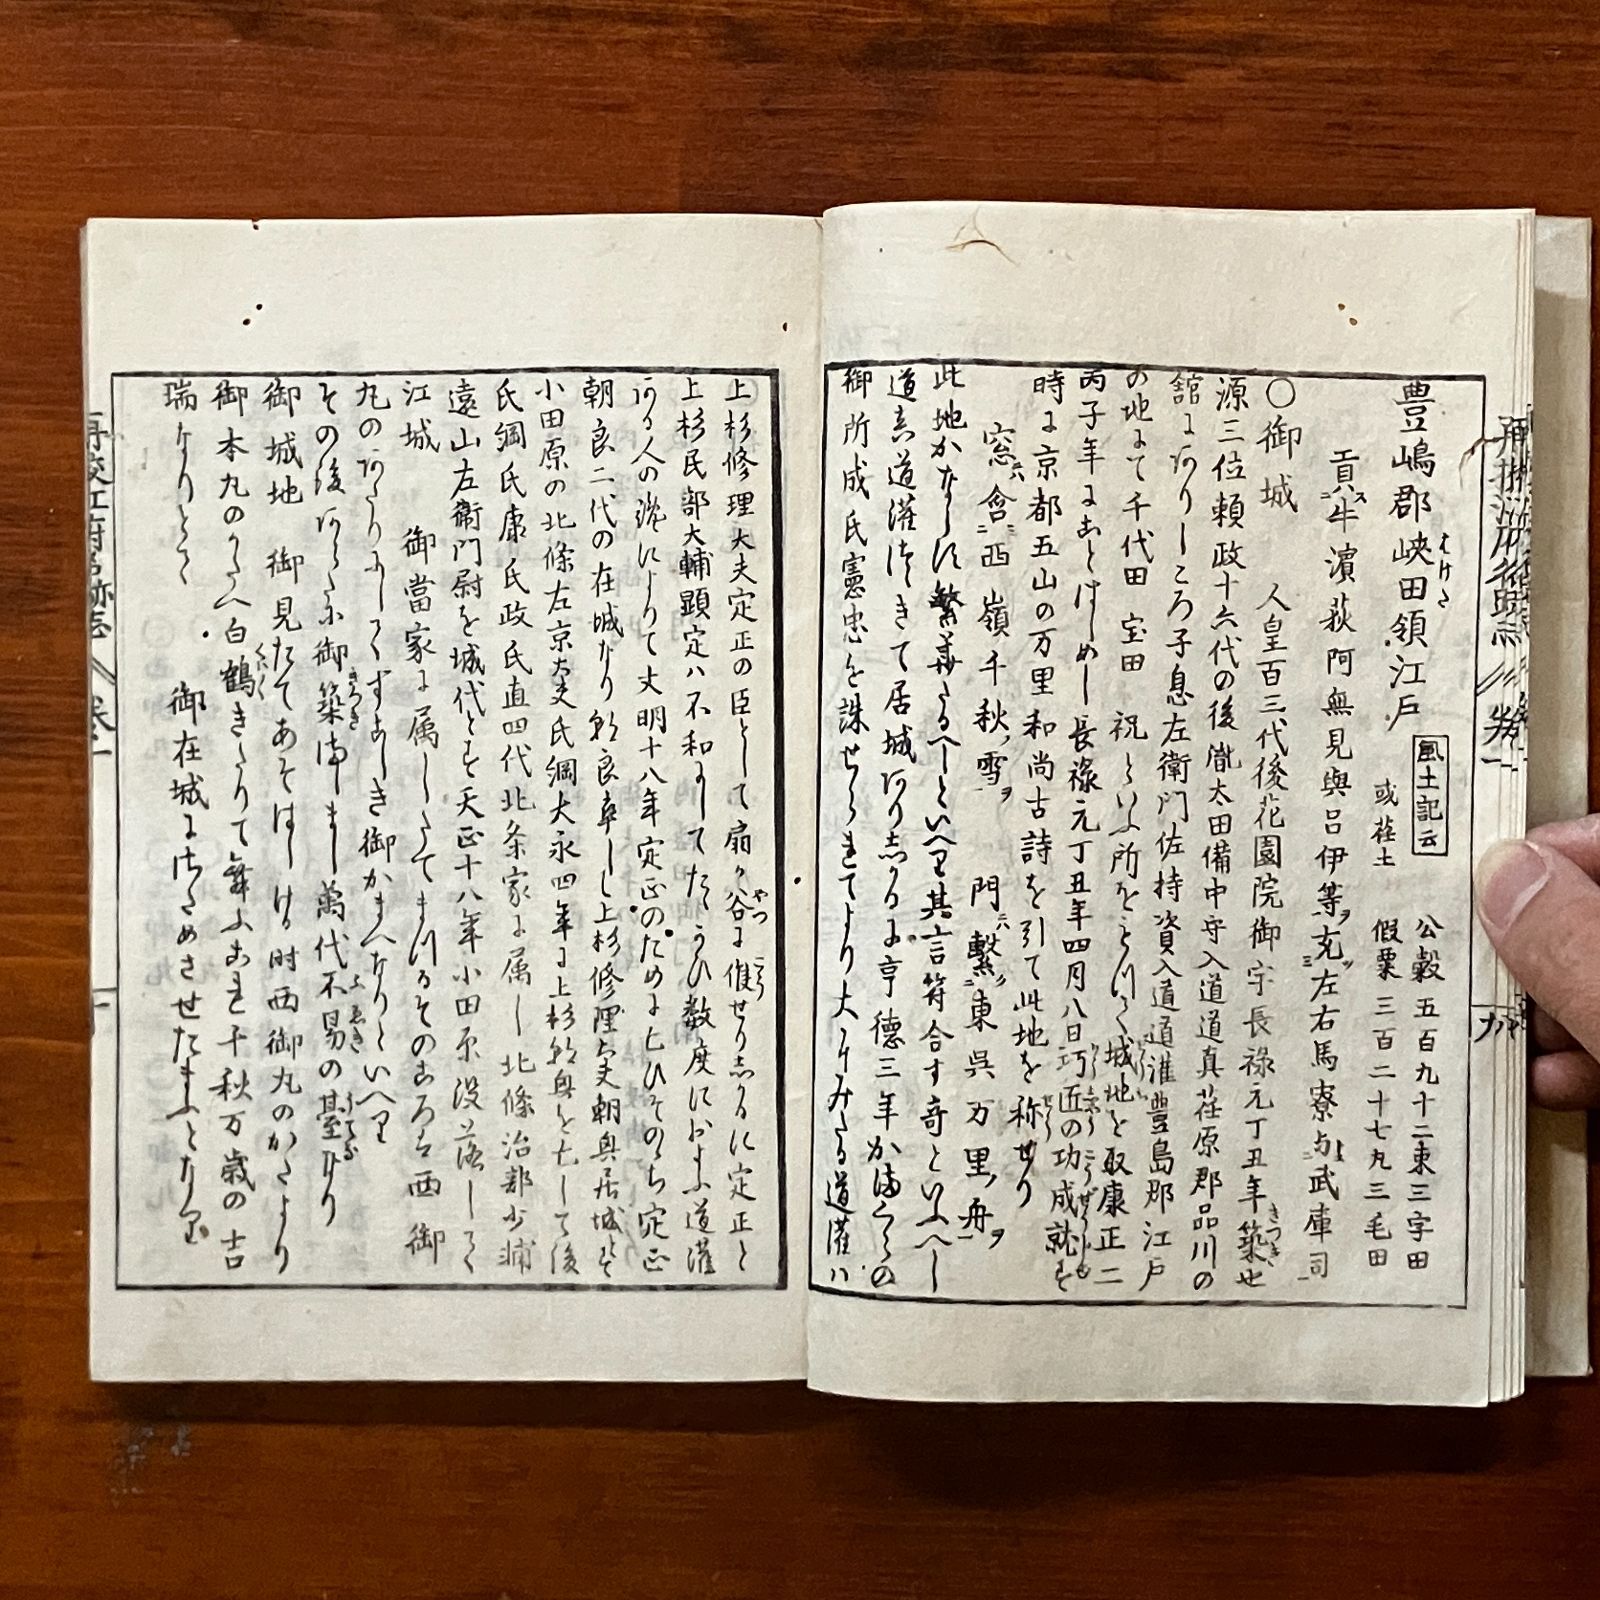 豊嶋郡峽田領江戸 風土記云 或荏土 公穀五百九十二束三字田 假粟三百二十七丸三毛田
貢ス牛濱荻阿無見與呂伊等ヲ充左右馬寮与武庫司
〇御城 人皇百三代後花園院御宇長禄元丁丑年築也
源三位頼政十六代の後胤太田備中守入道道真荏原郡品川の
舘にありしころ子息左衛門佐持資入道道灌豊島郡江戸
の地にて千代田 宝田 祝といふ所をみつく城地を取康正二
丙子年にことはしめし長禄元丁丑年四月八日巧匠の功成就す
時に京都五山の万里和尚古詩を引て此地を称せり
窓ニハ含西嶺千秋ノ雪ヲ 門ニハ繋東呉万里ノ舟ヲ
此地かならす繁華たるへしといへり其言符合す奇といふへし
道真道灌つゝきて居城ありしかるに亨徳三年かまくらの
御所成氏憲忠を誅せられてより大にみたる道灌ハ
上杉修理大夫定正の臣として扇か谷に催せりしかるに定正と
上杉民部大輔顕定ハ不和にしてたゝかひ数度におよふ道灌
ある人の讒によりて文明十八年定正のためにむひそのゝち定正
朝良二代の在城なり朝良卒しし上杉修理大夫朝興居城とす
小田原の北條左京大夫氏綱大永四年に上杉朝興を亡して後
氏綱氏康氏政氏直四代北条家に属し北條治部少輔
遠山左衛門尉を城代とす天正十八年小田原没落してく
江城 御當家に属したてまつるそのころハ西 御
丸のあたりにしてくすこしき御かまへなりといへり
その後あらたに御築ましまし萬代不易の臺なり
御城地 御見たてあそはしける時西御丸のかたより
御本丸のかたへ白鶴きたりて舞ふこれ千秋万歳の吉
瑞なりとて 御在城にさためさせたまふとなり